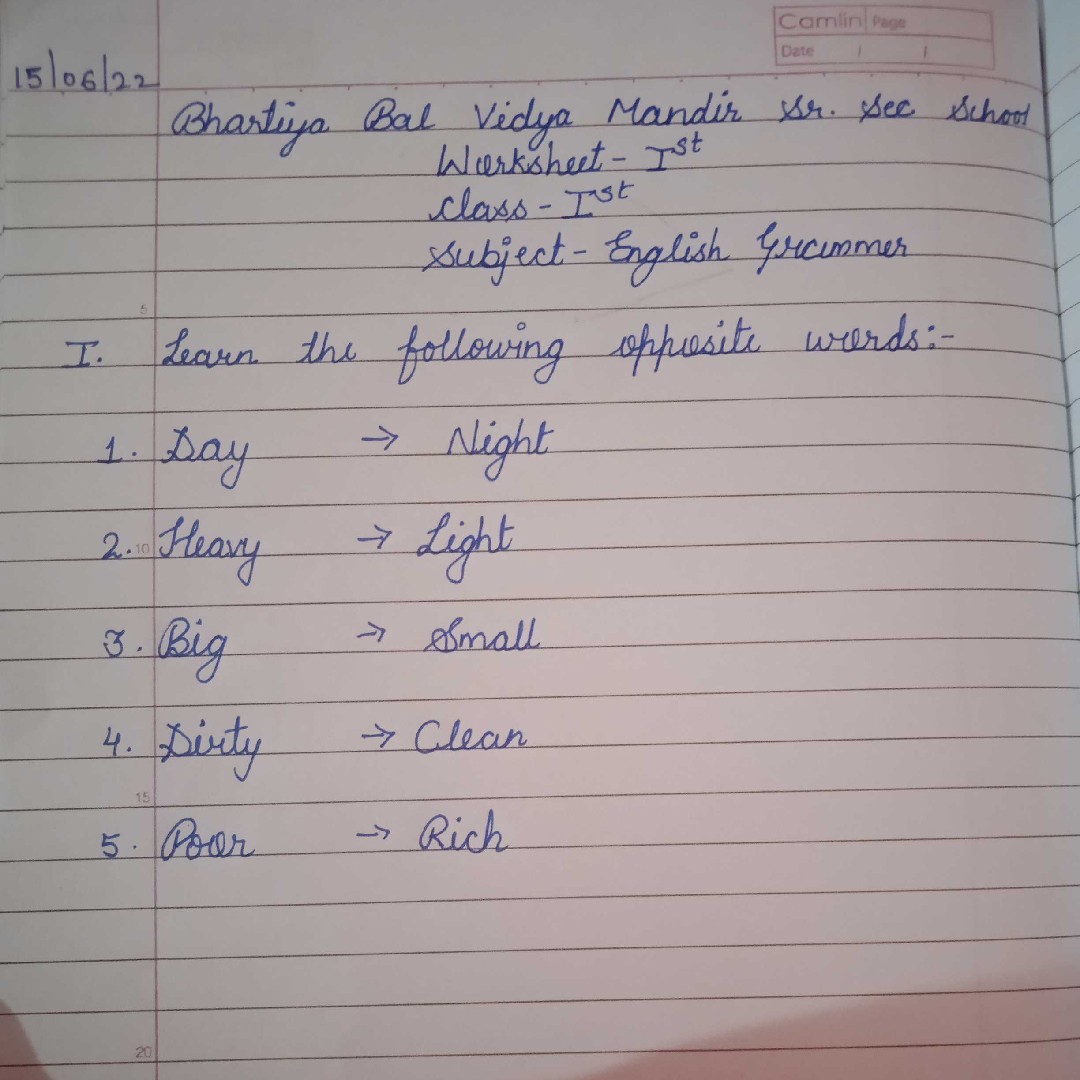 Camlin Page
Date / /
15/06/22
Bhartiya Bal Vidya Mandir Sr. Sec School
Worksheet - Ist
Class - Ist
Subject - English Grammer
5
I. Learn the following opposite words:-
1. Day → Night
10
2. Heavy → Light
3. Big → Small
4. Dirty → Clean
15
5. Poor → Rich
20